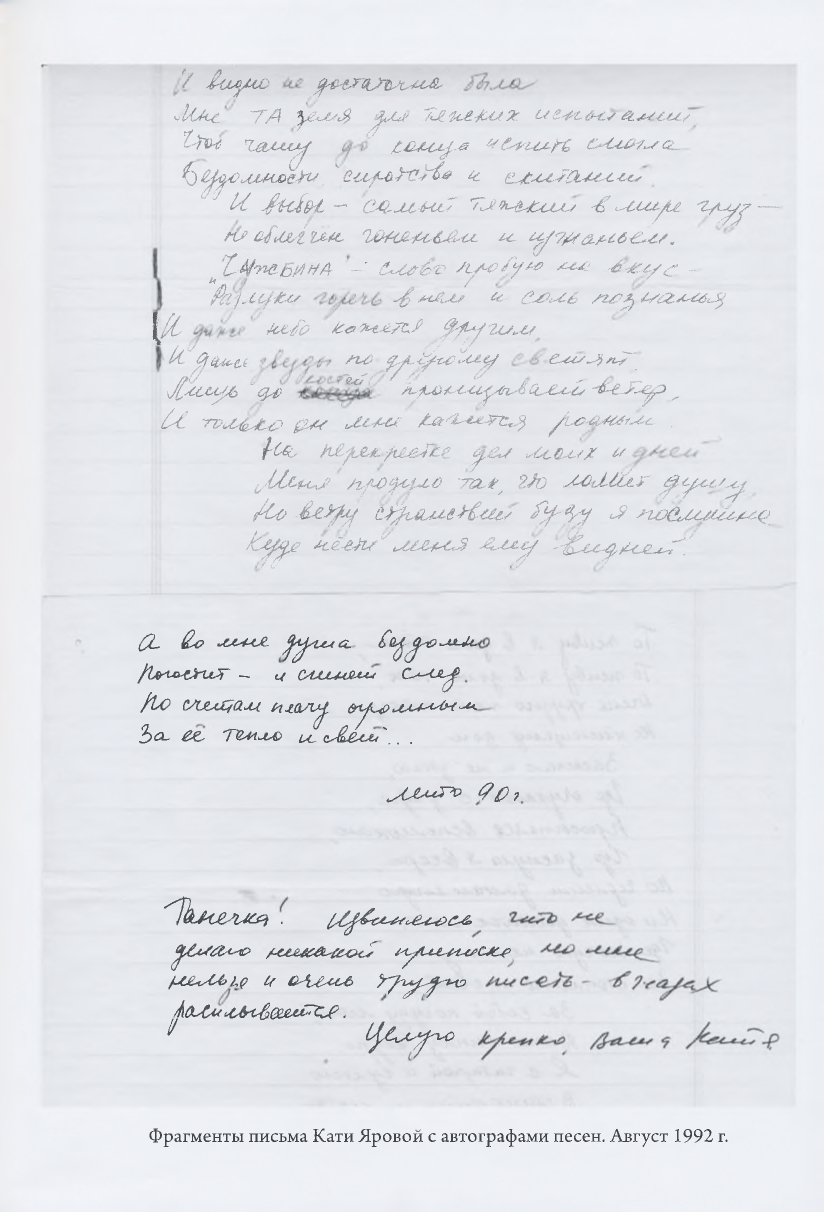 И видно не достаточна была
Мне ТА земля для тяжких испытаний,
Чтоб чашу до конца испить смогла
Бездомности сиротства и скитаний.
И выбор – самый тяжский в мире груз –
Не облегчён гоненьем и изгнаньем.
„ЧУЖБИНА" – слово пробую на вкус –
Разлуки горечь в нем и соль познанья
И даже небо кажется другим,
И даже звезды по другому светят,
Лишь до костей пронизывает ветер,
И только он мне кажется родным.
На перекрестке дел моих и дней
Меня продуло так, что ломит душу,
Но ветру странствий буду я послушна
Куда нести меня ему видней.
А во мне душа бездомно
Погостит – и сгинет след.
По счетам плачу огромным
За её тепло и свет...
лето 90 г.
Танечка! Извиняюсь, что не
делаю никакой приписки, но мне
нельзя и очень трудно писать – в глазах
расплывается.
Целую крепко, Ваша Катя
Фрагменты письма Кати Яровой с автографами песен. Август 1992 г.